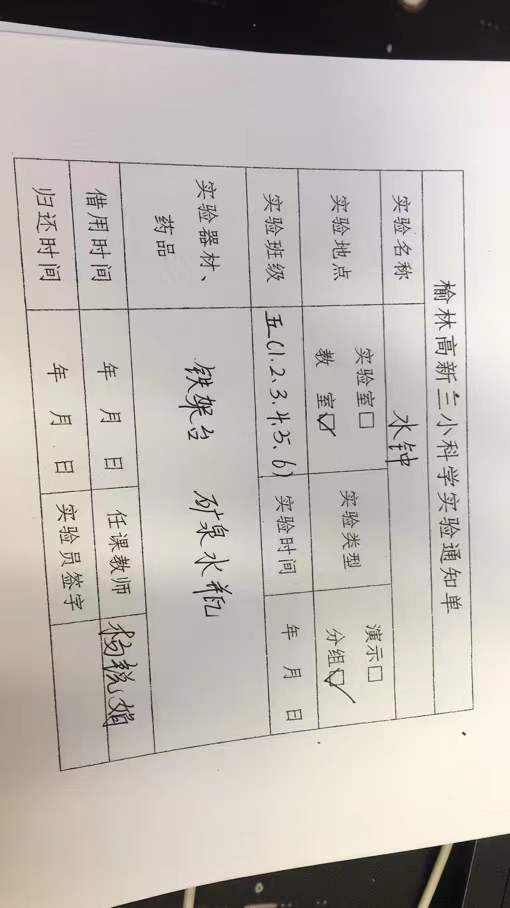 榆林高新三小科学实验通知单
实验名称 水钟
实验地点 实验室□ 教 室☑ 实验类型 演示□ 分组☑
实验班级 五(1.2.3.4.5.6) 实验时间 年 月 日
实验器材、药品 铁架台 矿泉水瓶
借用时间 年 月 日 任课教师 杨
归还时间 年 月 日 实验员签字